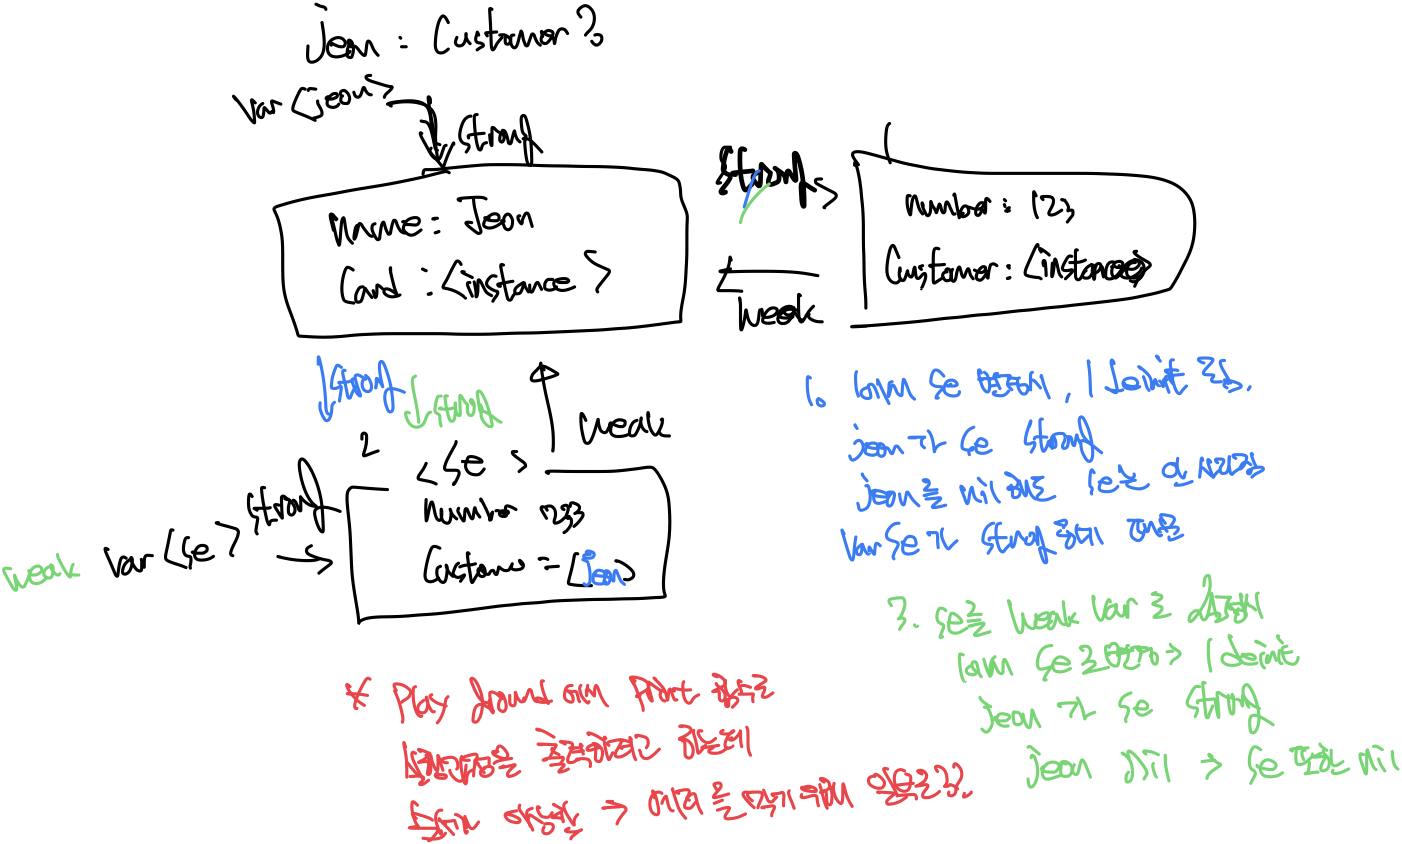 jeon : Customer?
var <jeon>
strong
name : Jeon
Card : <instance>
strong
weak
1
number : 123
Customer : <instance>
strong
strong
weak
2
<se>
number 233
Custome = <jeon>
strong
var <se>
weak
1. se 변경시, 1 deinit 됨.
jeon가 se strong
jeon를 nil 해도 se는 안 사라짐
var se가 strong 하기 때문
3. se를 weak var로 설정시
se로 변경 → 1 deinit
jeon가 se strong
jeon nil → se 또한 nil
* Play Ground print 함수로
실행과정을 출력하려고 하는데
→ 에러를 막기 위해